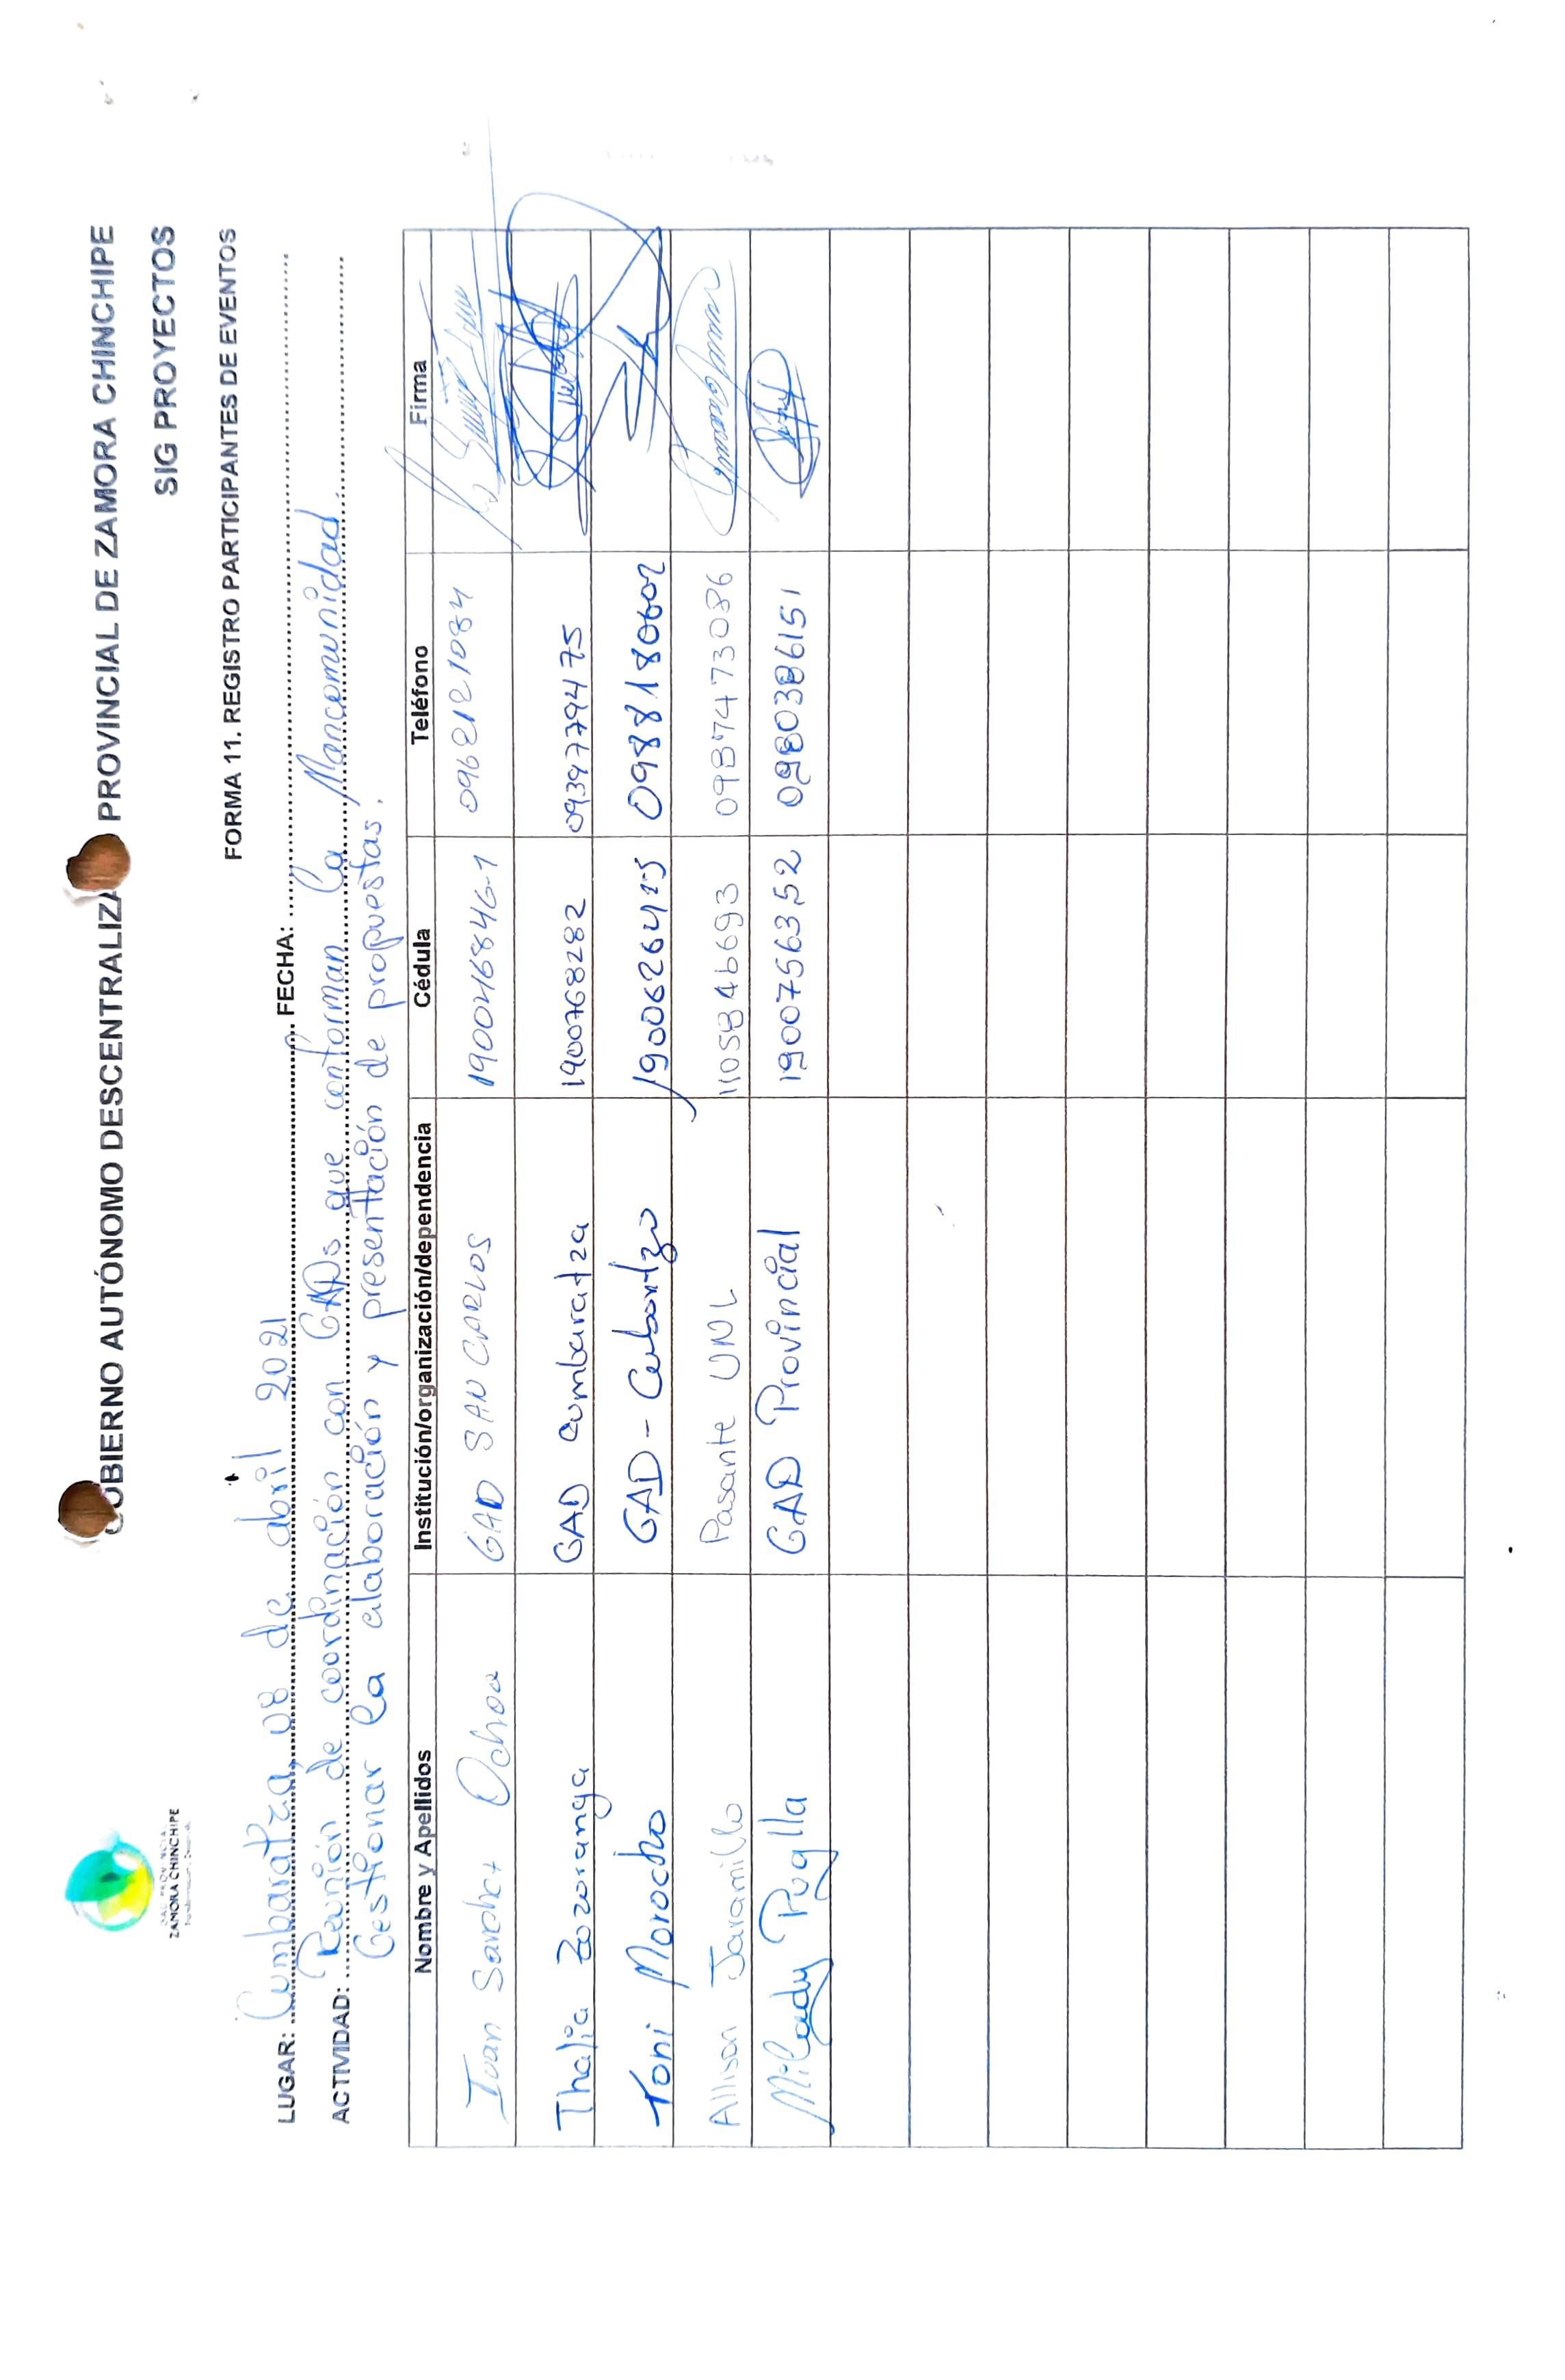 GOBIERNO AUTÓNOMO DESCENTRALIZA PROVINCIAL DE ZAMORA CHINCHIPE
SIG PROYECTOS
ZAMORA CHINCHIPE
FORMA 11. REGISTRO PARTICIPANTES DE EVENTOS
LUGAR: Cumbaratza, 08 de abril 2021 FECHA:
ACTIVIDAD: Reunión de coordinación con GADs que conforman la Mancomunidad.
Gestionar la elaboración y presentación de propuestas.
Nombre y Apellidos Institución/organización/dependencia Cédula Teléfono Firma
Ivan Sanchez Ochoa GAD SAN CARLOS 190046846-1
Thalia Zozoranga GAD Cumbaratza 1900768282 0939779475
Toni Morocho GAD - 0988180602
Allison Jaramillo Pasante UNL 1105846693 0987473086
Milady Puglla GAD Provincial 1900756352 0980386151